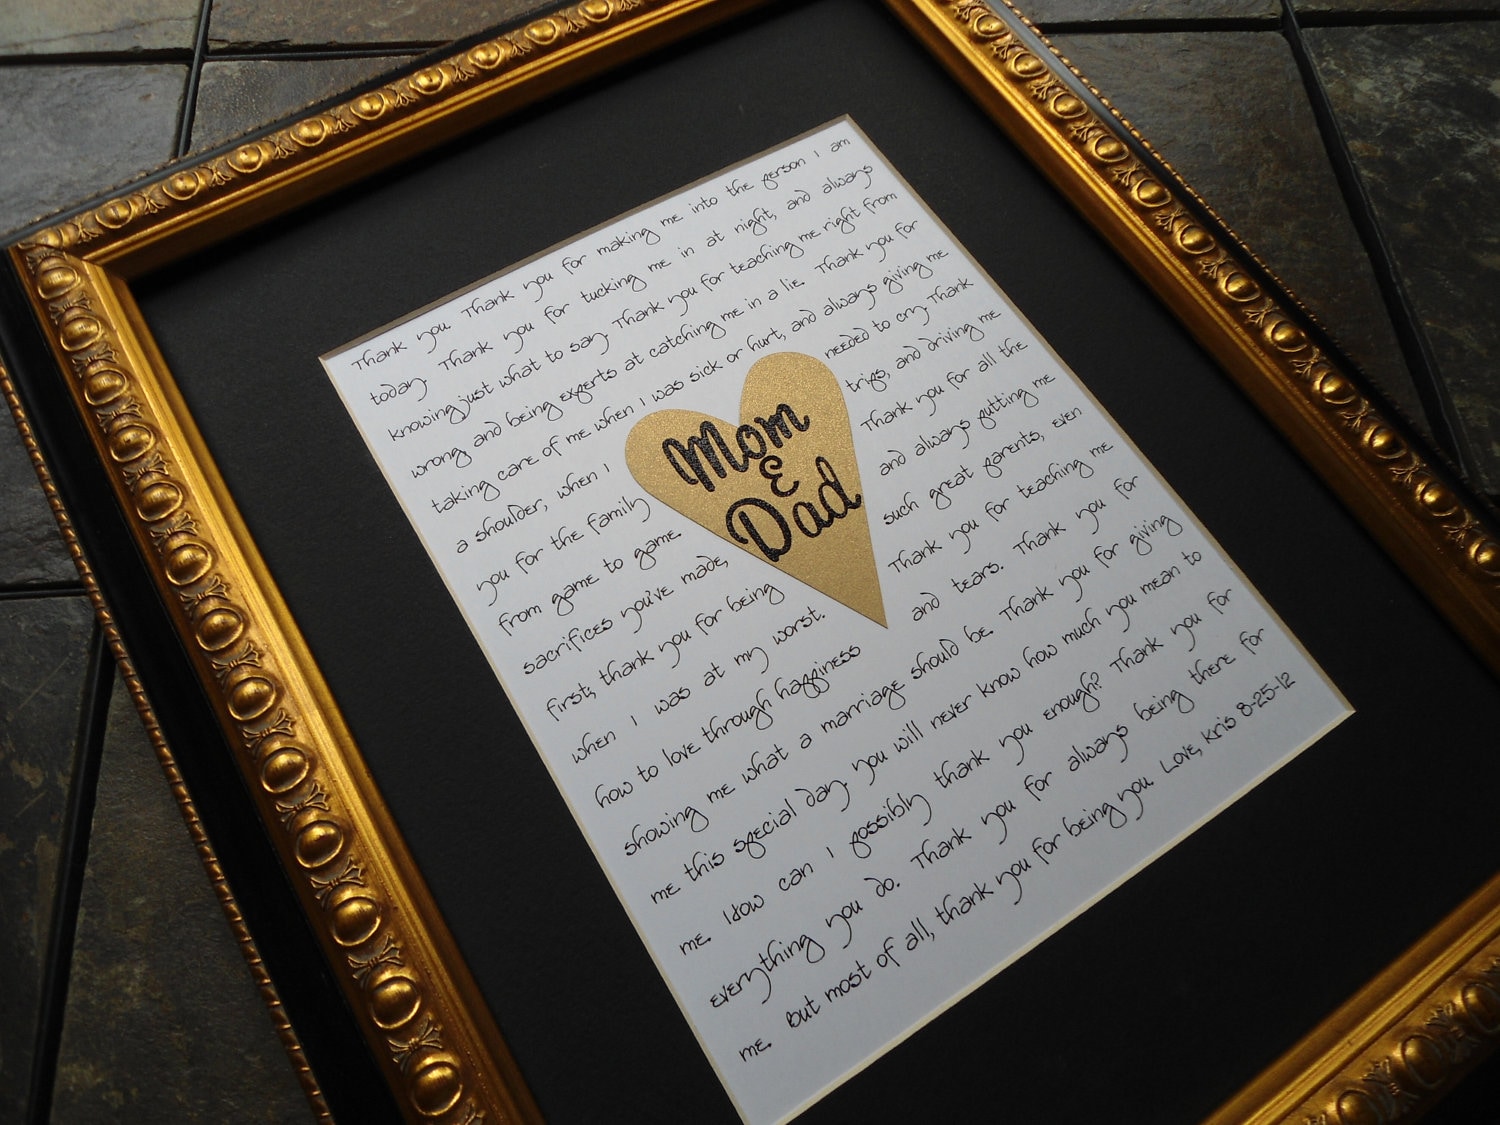 Thank you. Thank you for making me into the person I am
today. Thank you for tucking me in at night, and always
knowing just what to say. Thank you for teaching me right from
wrong, and being experts at catching me in a lie. Thank you for
taking care of me when I was sick or hurt, and always giving me
a shoulder, when I needed to cry. Thank
you for the family trips, and driving me
from game to game. Thank you for all the
sacrifices you've made, and always putting me
first, thank you for being such great parents, even
when I was at my worst. Thank you for teaching me
how to love through happiness and tears. Thank you for
showing me what a marriage should be. Thank you for giving
me this special day. you will never know how much you mean to
me. How can I possibly thank you enough? Thank you for
everything you do. Thank you for always being there for
me. but most of all, thank you for being you. Love, Kris 8-25-12
Mom
&
Dad